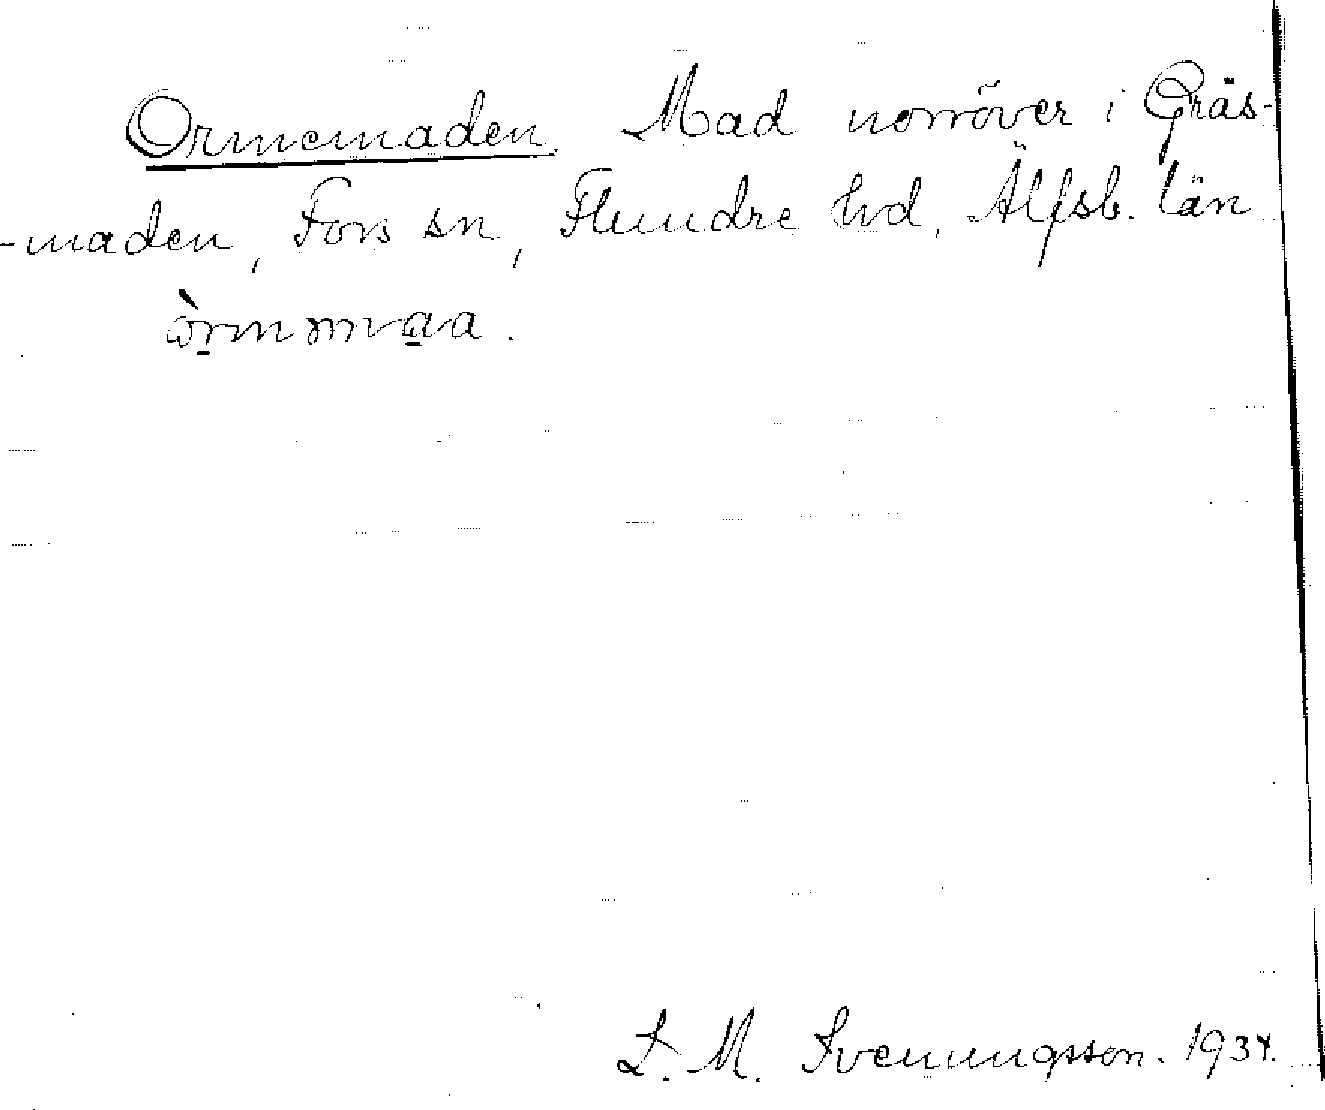 Ormemaden. Mad norröver i Gräs-
-maden, Fors sn, Flundre hd, Älfsb. län
òrmmaa.
L. M. Svenungsson. 1934.